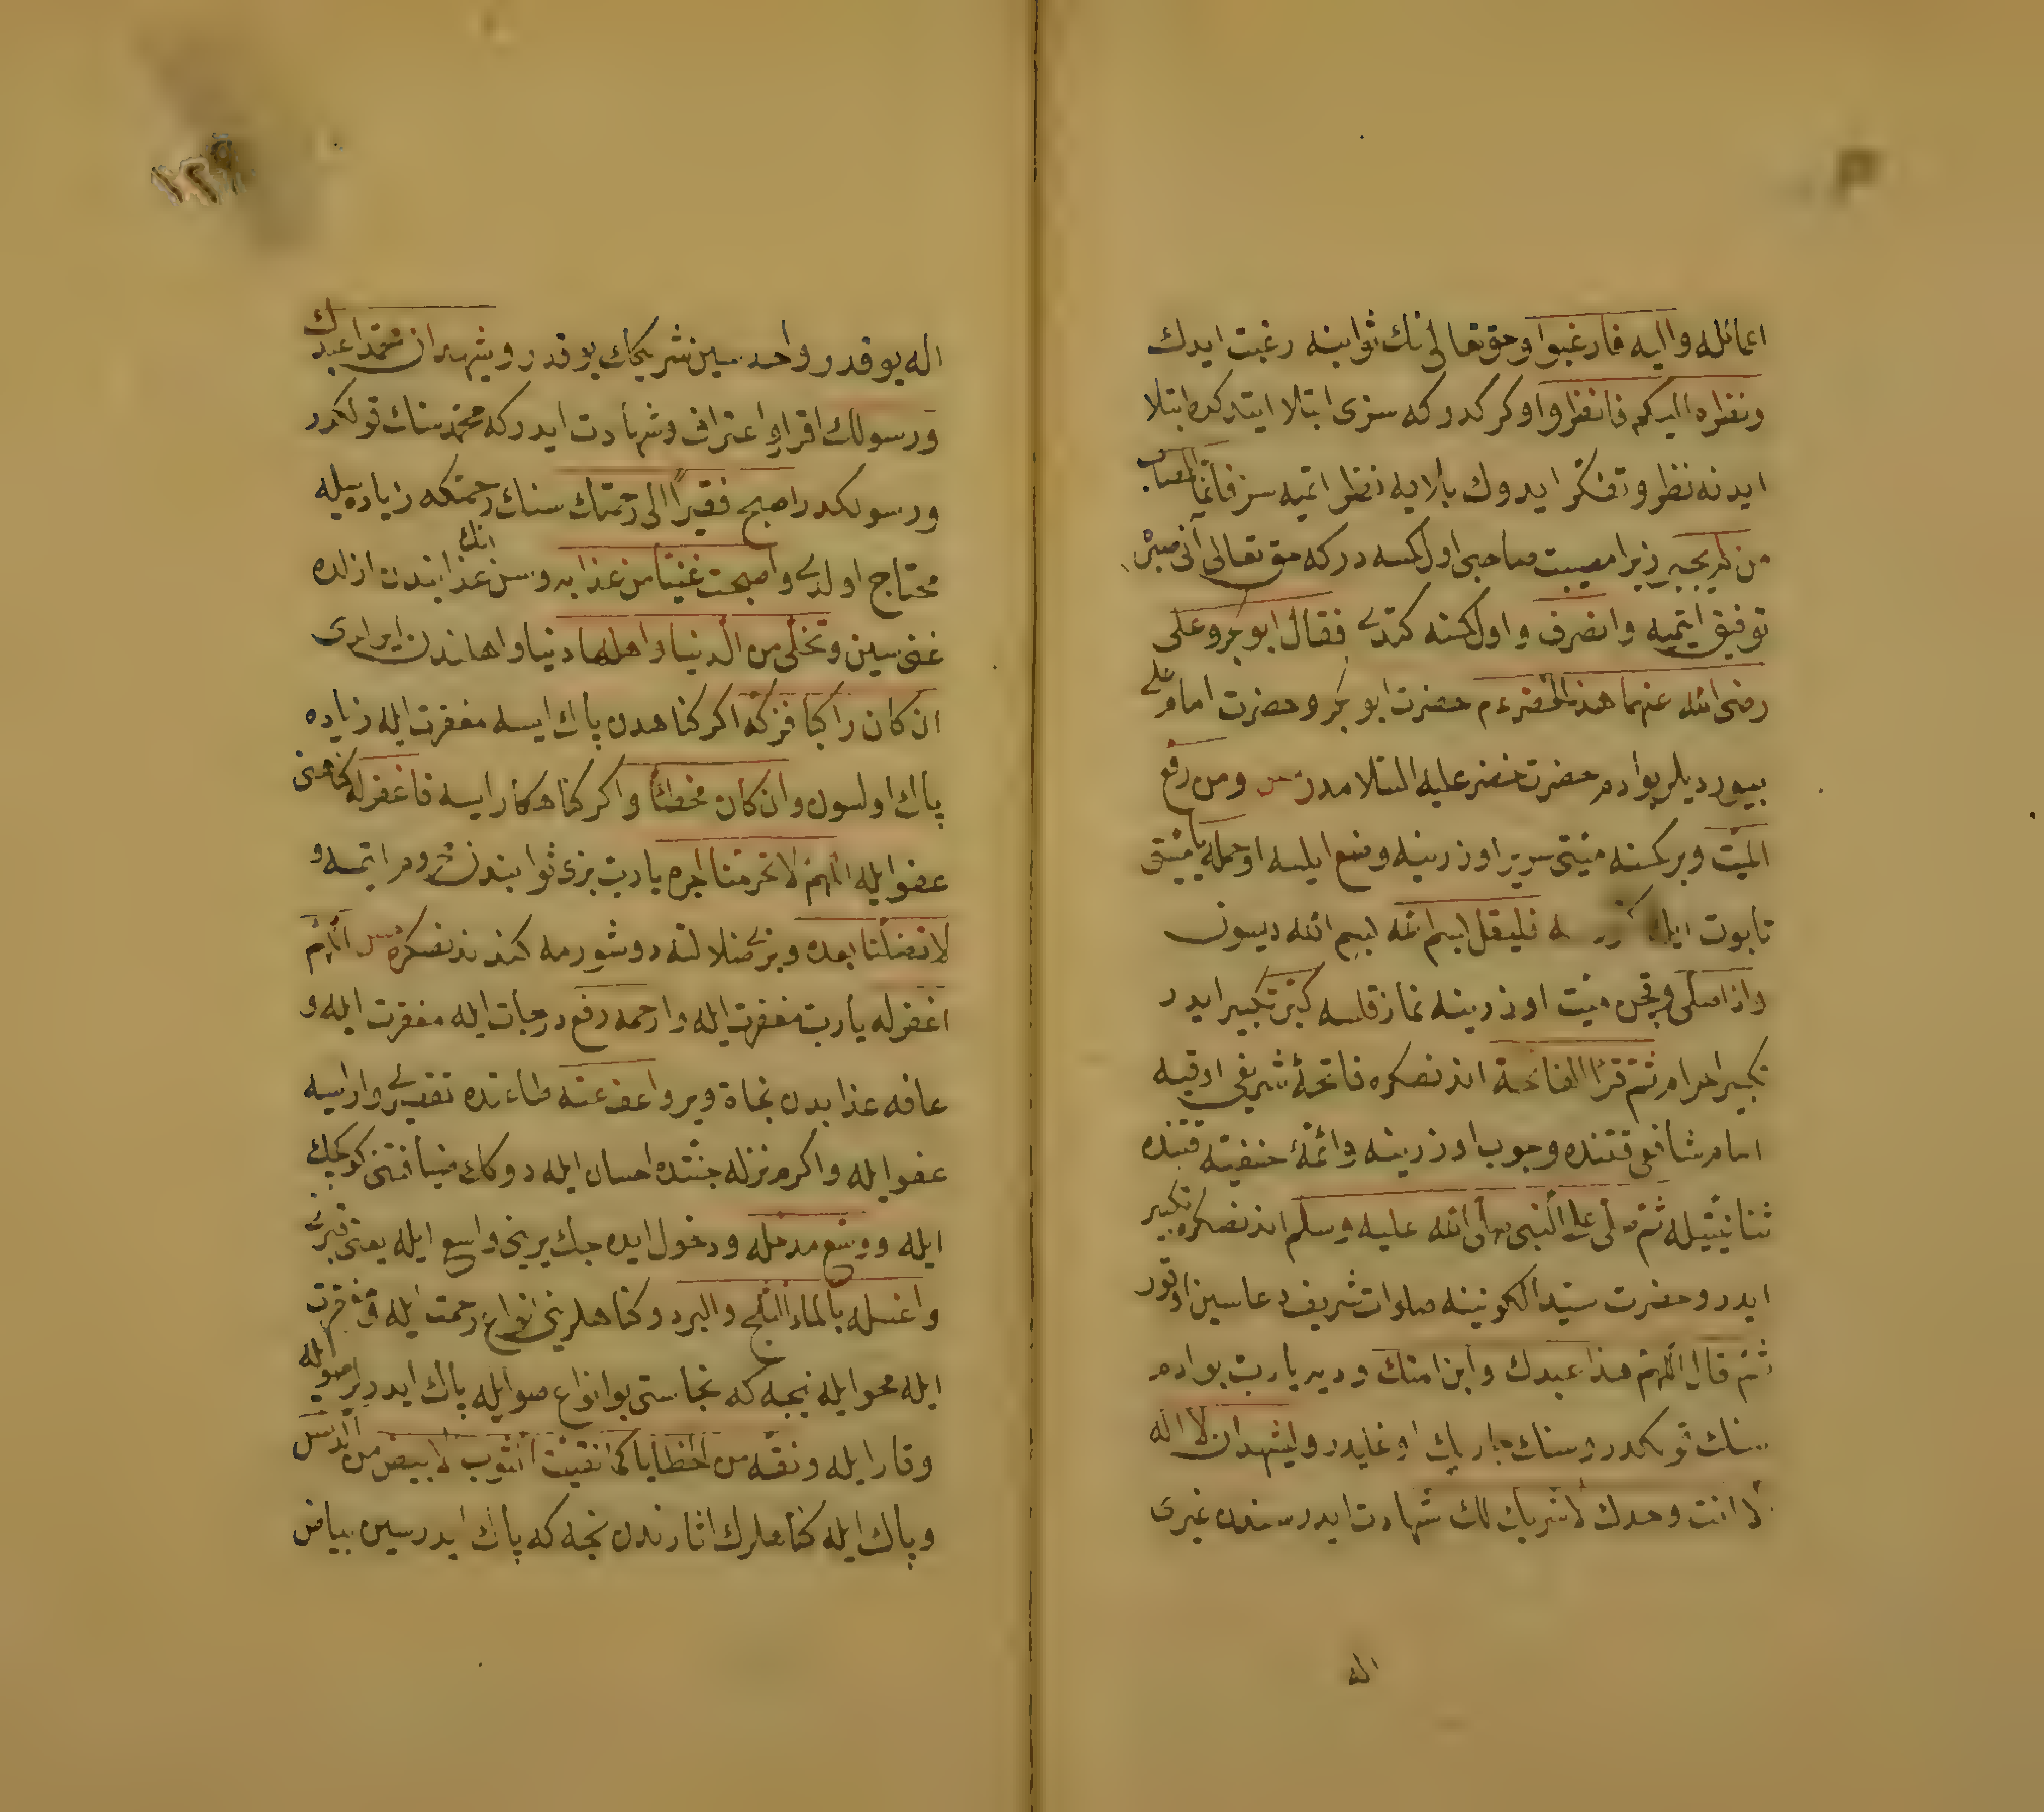 اعائله واليه فارغبوا وحق تعالى نك ثوابنه رغبت ايدك
ونظره اليكم فانظروا اوكركدركه سزى ابتلا ايتدكده ابتلا
ايدنه نظر وتفكر ايدوك بلايه نظر اتميه سز فانما المصاب
من لم يجبر زيرا مصيبت صاحبى اول كمسه دركه حق تعالى آنى صبره
توفيق ايتميه وانصرف واول كسنه كتدى فقال ابو بكر وعلى
رضى الله عنهما هذا الخضر ءم حضرت ابو بكر وحضرت امام على
بيورديلر بوادم حضرت خضر عليه السلامدر ومن رفع
الميت وبر كمسنه ميتى سرير اوزرينه وضع ايلسه اوحمله يا ميتى
تابوت ايله فليقل بسم الله بسم الله ديسون
واذا صلى وقچن ميت اوزرينه نماز قلسه كبر تكبير ايدر
تكبير احرام ثم قرأ الفاتحة اندنصكره فاتحۀ شريفى اوقيه
امام شافعى قتنده وجوب اوزرينه وائمۀ حنفيته قتنده
ثنا نيتيله ثم صلى على النبى صلى الله عليه وسلم اندنصكره تكبير
ايدر وحضرت سيد الكونينه صلوات شريف دعاسين اوقور
ثم قال اللهم هذا عبدك وابن امتك وديه يارب بوادم
سنك قولكدر وسنك جاريك اوغليدر ويشهد ان لا اله
الا انت وحدك لا شريك لك شهادت ايدر سندن غيرى
اله
اله يوقدر واحد سين شريكك يوقدر ويشهد ان محمدا عبدك
ورسولك اقرار واعتراف وشهادت ايدركه محمد سنك قولكدر
ورسولكدر اصبح فقيرًا الى رحمتك سنك رحمتكه زياده سيله
محتاج اولدى واصبحت غنيا من عذابه وسن انك عذابندن ازلده
غنى سين وتخلى من الدنيا واهلها دنيا واهلندن ايرلدى
ان كان زاكيا فزكه اكر كناهدن پاك ايسه مغفرت ايله زياده
پاك اولسون وان كان مخطئا واكر كناهكار ايسه فاغفر له كناهنى
عفو ايله اللهم لا تحرمنا اجره يارب بزى ثوابندن محروم اتمه و
لا تضلنا بعده وبزى ضلالته دوشورمه كندندنصكره اللهم
اغفر له يارب مغفرت ايله وارحمه رفع درجات ايله مغفرت ايله و
عافه عذابدن نجاة وير واعف عنه طاعتده تقصيرى وار ايسه
عفو ايله واكرم نزله جنتده احسان ايله دوكك ضيافتنى كوكچك
ايله ووسع مدخله ودخول ايده جك يرينى واسع ايله يعنى قبرنى
واغسله بالماء والثلج والبرد وكناهلرينى انواع رحمت ايله مغفرت
ايله محو ايله نيجه كه نجاستى بو انواع صوايله پاك ايدرلر صويله
وقار ايله ونقه من الخطايا كما نقيت الثوب الابيض من الدنس
وپاك ايله كناهلرك اثارندن نجه كه پاك ايدرسين بياض